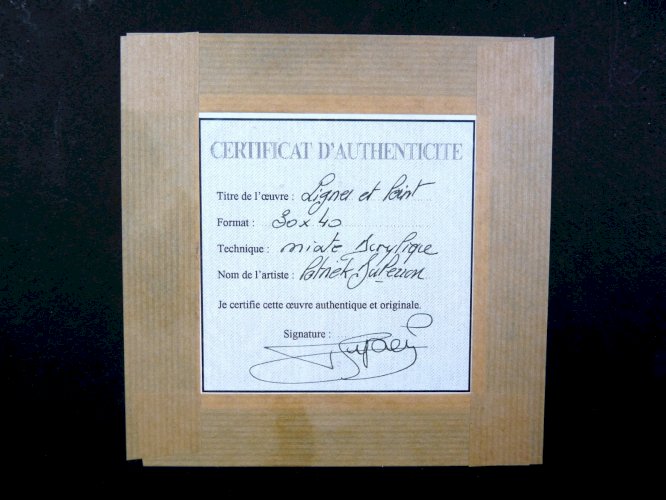 CERTIFICAT D'AUTHENTICITE
Titre de l'œuvre : Lignes et Point
Format : 30 x 40
Technique : mixte Acrylique
Nom de l'artiste : Patrick
Je certifie cette œuvre authentique et originale.
Signature :